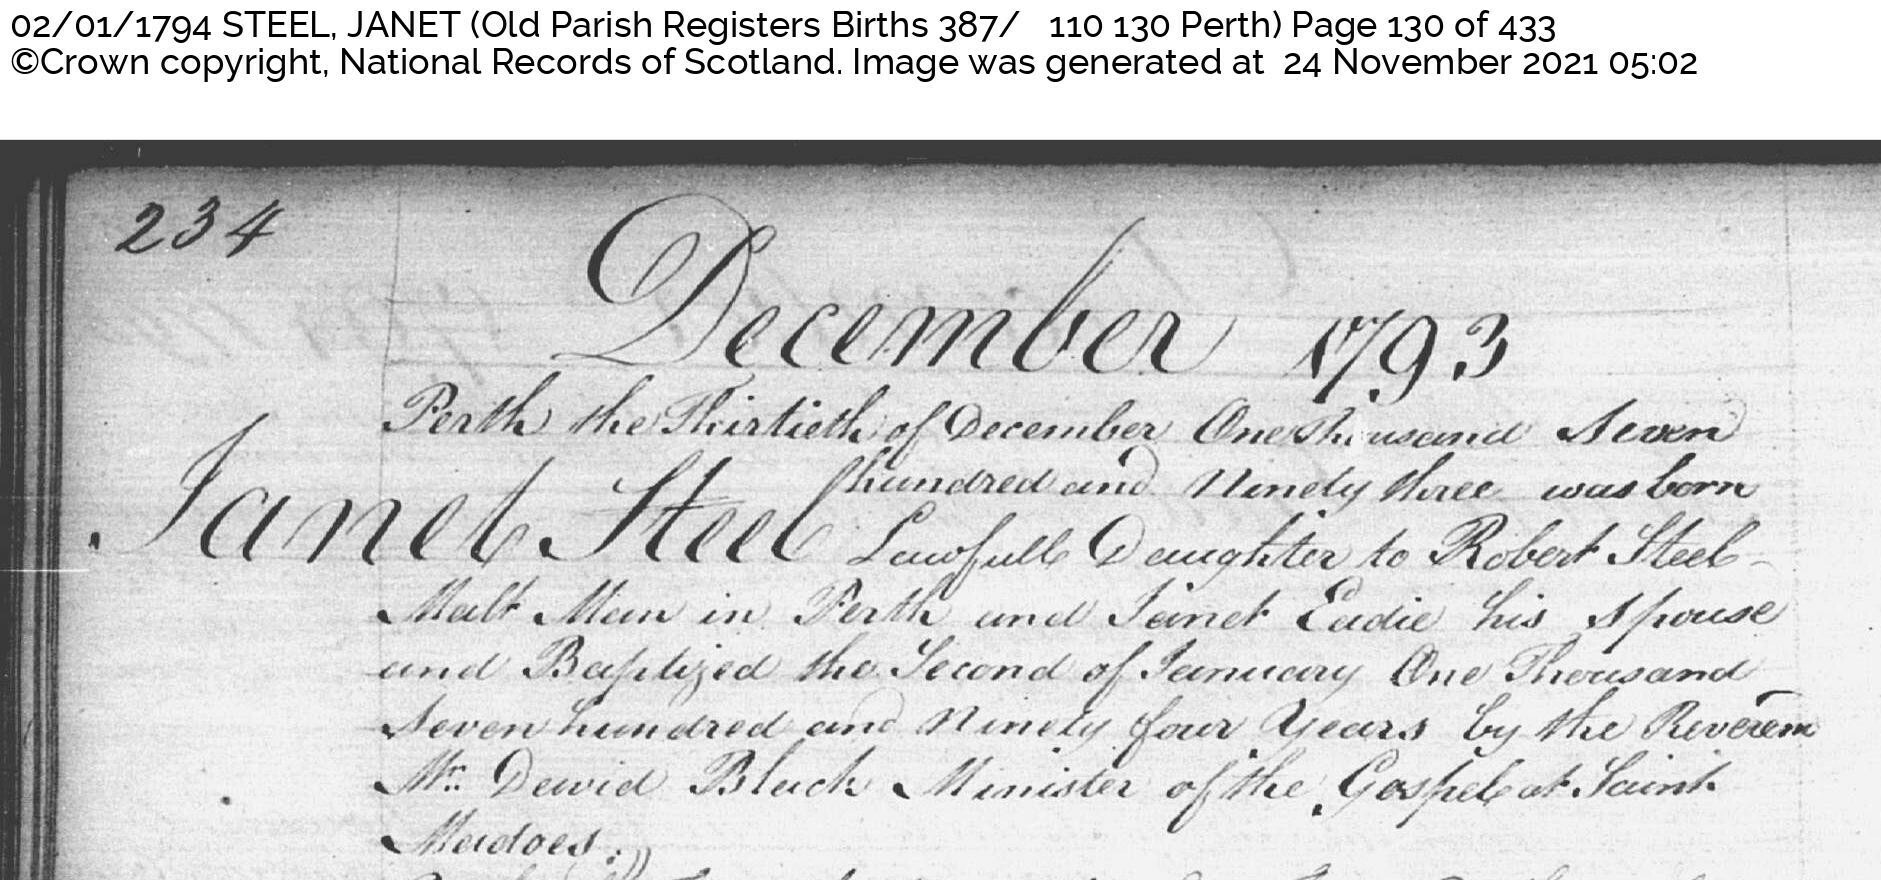 02/01/1794 STEEL, JANET (Old Parish Registers Births 387/ 110 130 Perth) Page 130 of 433
©Crown copyright, National Records of Scotland. Image was generated at 24 November 2021 05:02
234
December 1793
Perth the Thirtieth of December One thousand Seven
hundred and Ninety three was born
Janet Steel Lawfull Daughter to Robert Steel
Malt Man in Perth and Janet Eadie his Spouse
and Baptized the Second of January One Thousand
Seven hundred and Ninety four Years by the Reverem
Mr. David Black Minister of the Gospel at Saint
Madoes.